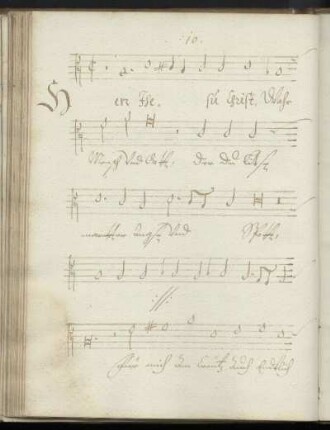 10.
Herr Jhe. su Christ, Wahr
Mensch Vnd Gott, Der Du
marter angst Vnd Spott,
Für mich am Creutz auch Endtlich